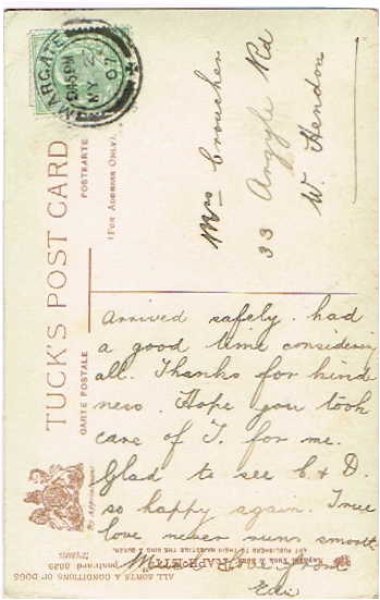 MARGATE
MY 2
07
TUCK'S POST CARD
POSTKARTE
(FOR ADDRESS ONLY)
CARTE POSTALE
By Appointment
Mrs Croucher
33 Argyle Rd
W. Hendon
Arrived safely. had
a good time considering
all. Thanks for kind
ness. Hope you took
care of T. for me.
Glad to see C & D.
so happy again. True
love never runs smooth
from
ALL SORTS & CONDITIONS OF DOGS
postcard 3029
ART PUBLISHERS TO THEIR MAJESTIES THE KING & QUEEN.